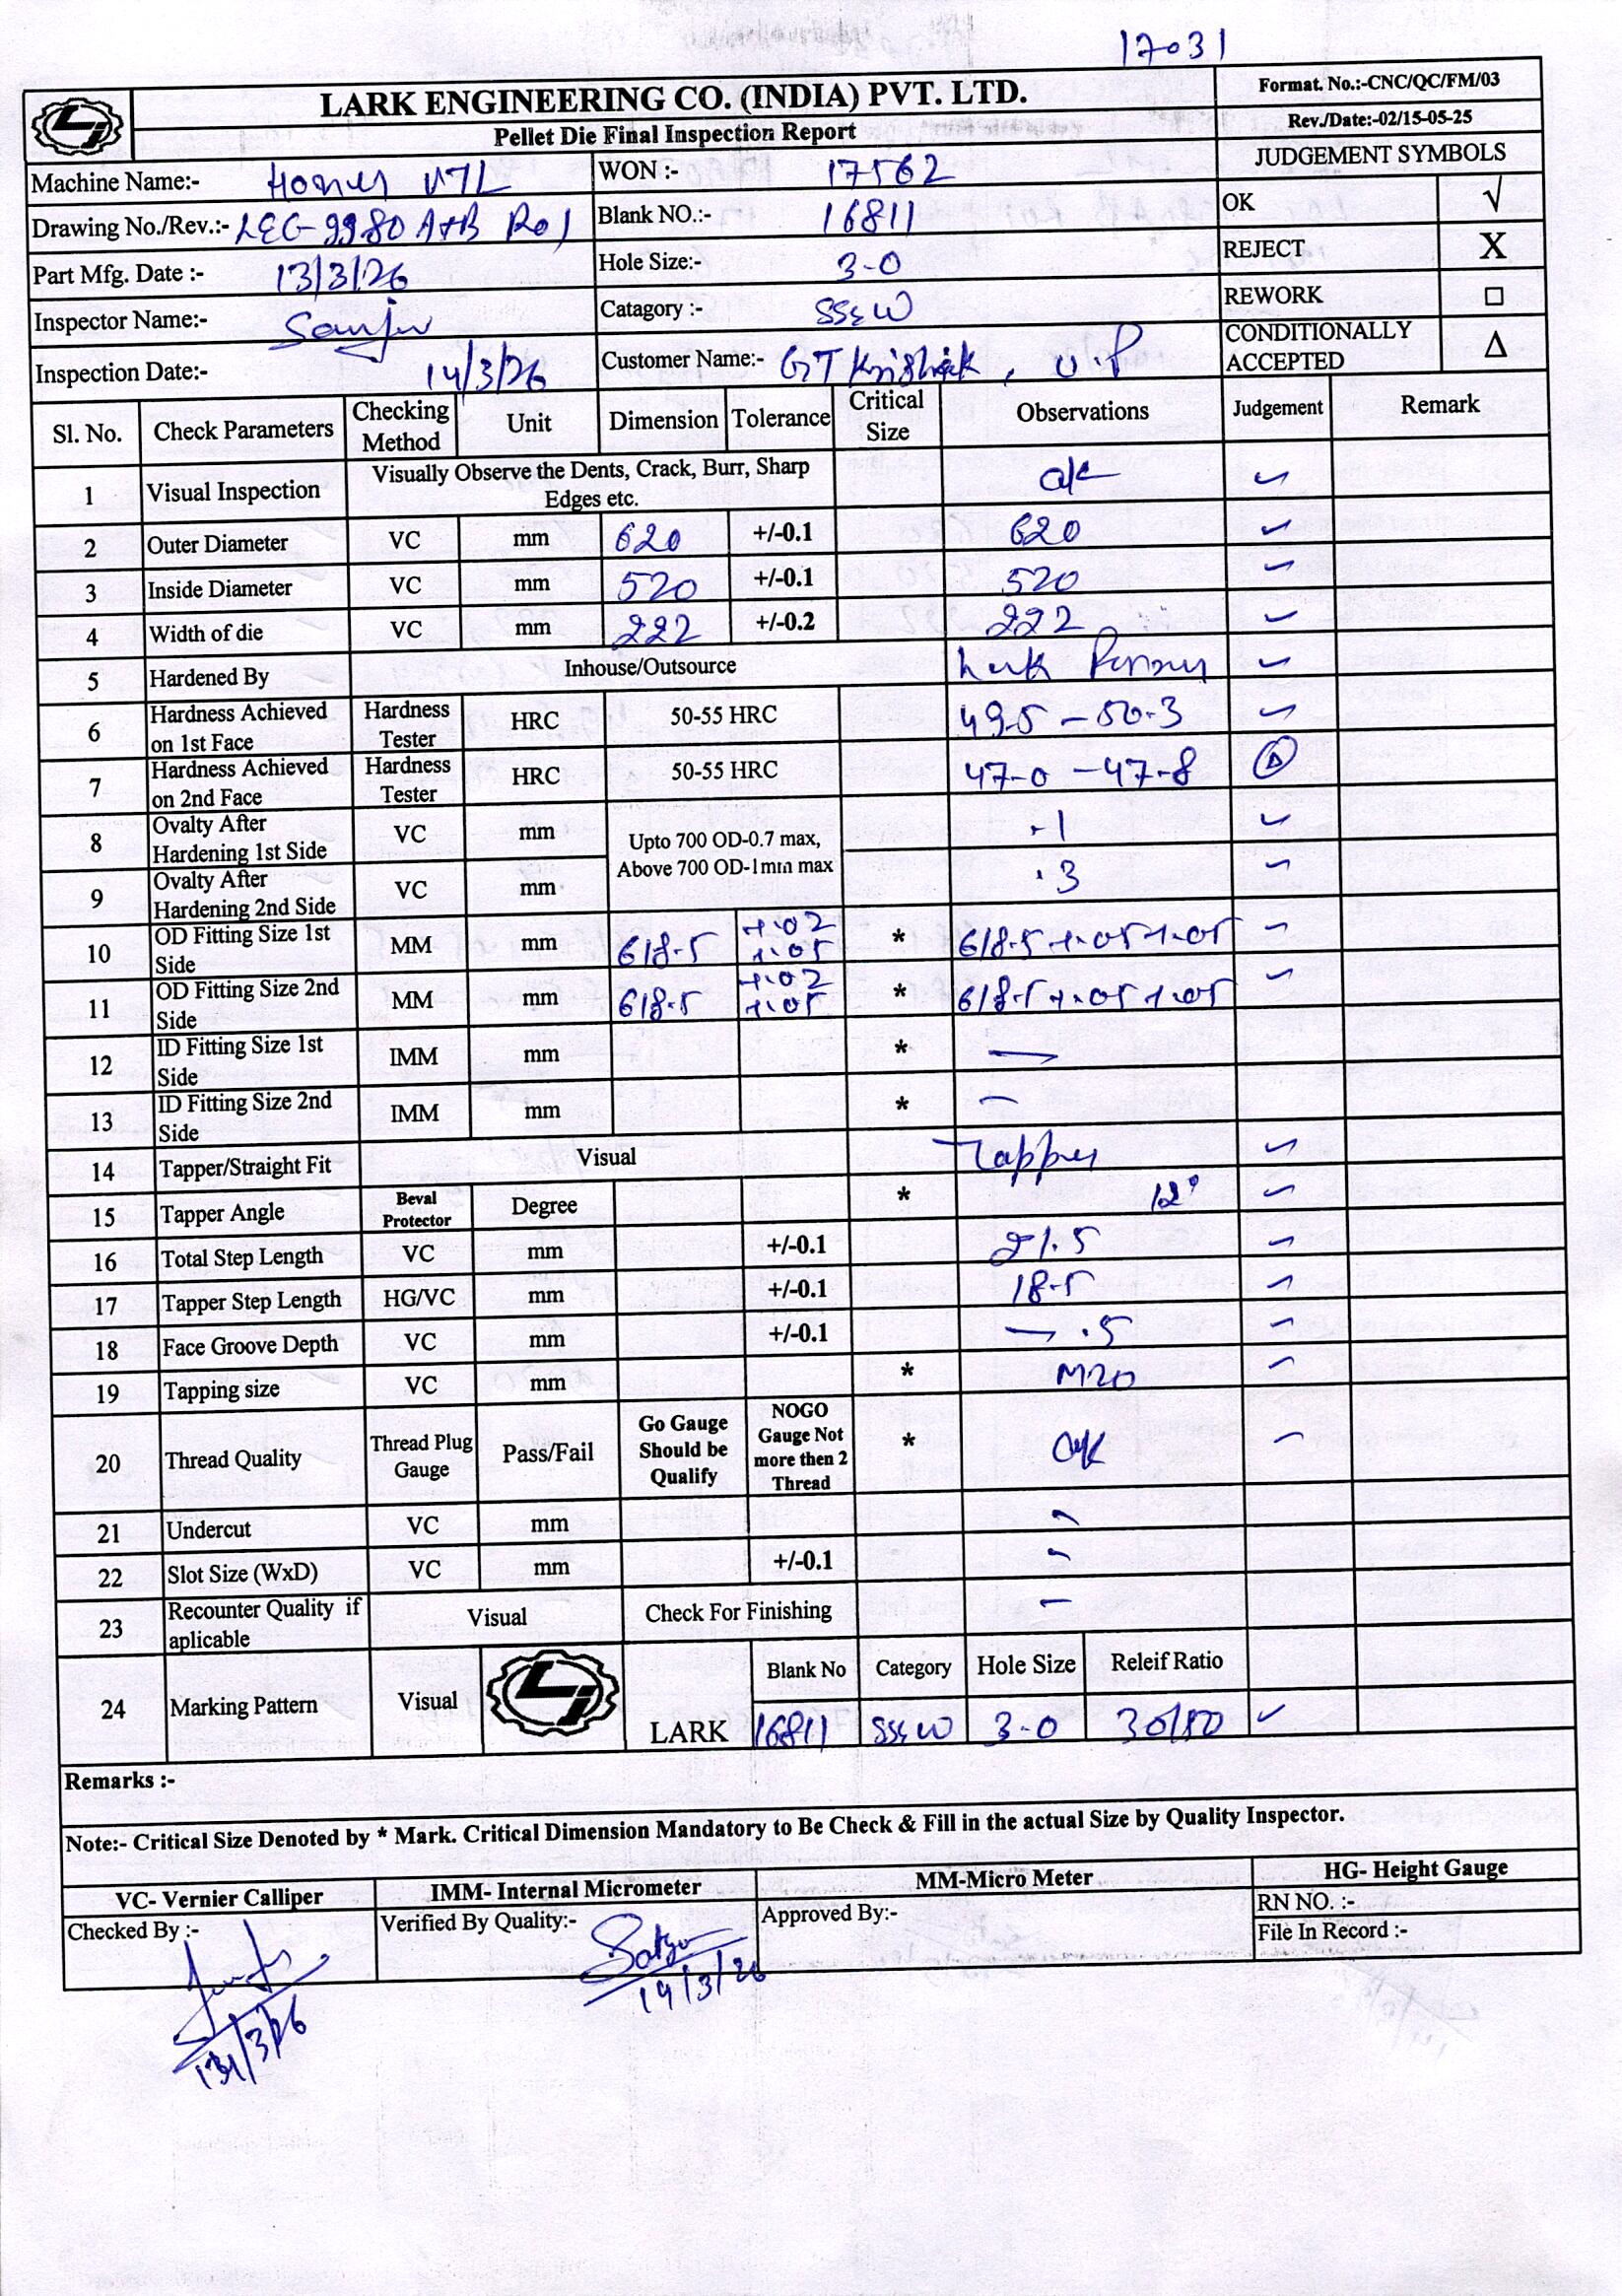 17031
LARK ENGINEERING CO. (INDIA) PVT. LTD.
Pellet Die Final Inspection Report
Format. No.:-CNC/QC/FM/03
Rev./Date:-02/15-05-25
JUDGEMENT SYMBOLS
Machine Name:- VTL WON :- 17562
OK √
Drawing No./Rev.:- LEG-9980 A+B R01 Blank NO.:- 16811
REJECT X
Part Mfg. Date :- 13/3/26 Hole Size:- 3-0
REWORK □
Inspector Name:- Sanju Catagory :- SS&W
CONDITIONALLY ACCEPTED Δ
Inspection Date:- 14/3/26 Customer Name:- GT Krishik, U.P
Sl. No. Check Parameters Checking Method Unit Dimension Tolerance Critical Size Observations Judgement Remark
1 Visual Inspection Visually Observe the Dents, Crack, Burr, Sharp Edges etc. o/k ✓
2 Outer Diameter VC mm 620 +/-0.1 620 ✓
3 Inside Diameter VC mm 520 +/-0.1 520 ✓
4 Width of die VC mm 222 +/-0.2 222 ✓
5 Hardened By Inhouse/Outsource ✓
6 Hardness Achieved on 1st Face Hardness Tester HRC 50-55 HRC 49.5 - 50.3 ✓
7 Hardness Achieved on 2nd Face Hardness Tester HRC 50-55 HRC 47-0 - 47-8 Δ
8 Ovalty After Hardening 1st Side VC mm Upto 700 OD-0.7 max, Above 700 OD-1mm max .1 ✓
9 Ovalty After Hardening 2nd Side VC mm .3 ✓
10 OD Fitting Size 1st Side MM mm 618.5 +.02 +.05 * 618.5 +.05 +.05 ✓
11 OD Fitting Size 2nd Side MM mm 618.5 +.02 +.05 * 618.5 +.05 +.05 ✓
12 ID Fitting Size 1st Side IMM mm * —
13 ID Fitting Size 2nd Side IMM mm * —
14 Tapper/Straight Fit Visual Tapper ✓
15 Tapper Angle Beval Protector Degree * 12° ✓
16 Total Step Length VC mm +/-0.1 21.5 ✓
17 Tapper Step Length HG/VC mm +/-0.1 18.5 ✓
18 Face Groove Depth VC mm +/-0.1 — .5 ✓
19 Tapping size VC mm * M20 ✓
20 Thread Quality Thread Plug Gauge Pass/Fail Go Gauge Should be Qualify NOGO Gauge Not more then 2 Thread * o/k ✓
21 Undercut VC mm -
22 Slot Size (WxD) VC mm +/-0.1 -
23 Recounter Quality if aplicable Visual Check For Finishing -
24 Marking Pattern Visual LARK Blank No Category Hole Size Releif Ratio
16811 SS&W 3-0 ✓
Remarks :-
Note:- Critical Size Denoted by * Mark. Critical Dimension Mandatory to Be Check & Fill in the actual Size by Quality Inspector.
VC- Vernier Calliper IMM- Internal Micrometer MM-Micro Meter HG- Height Gauge
Checked By :- Verified By Quality:- Approved By:- RN NO. :-
File In Record :-
14/3/26